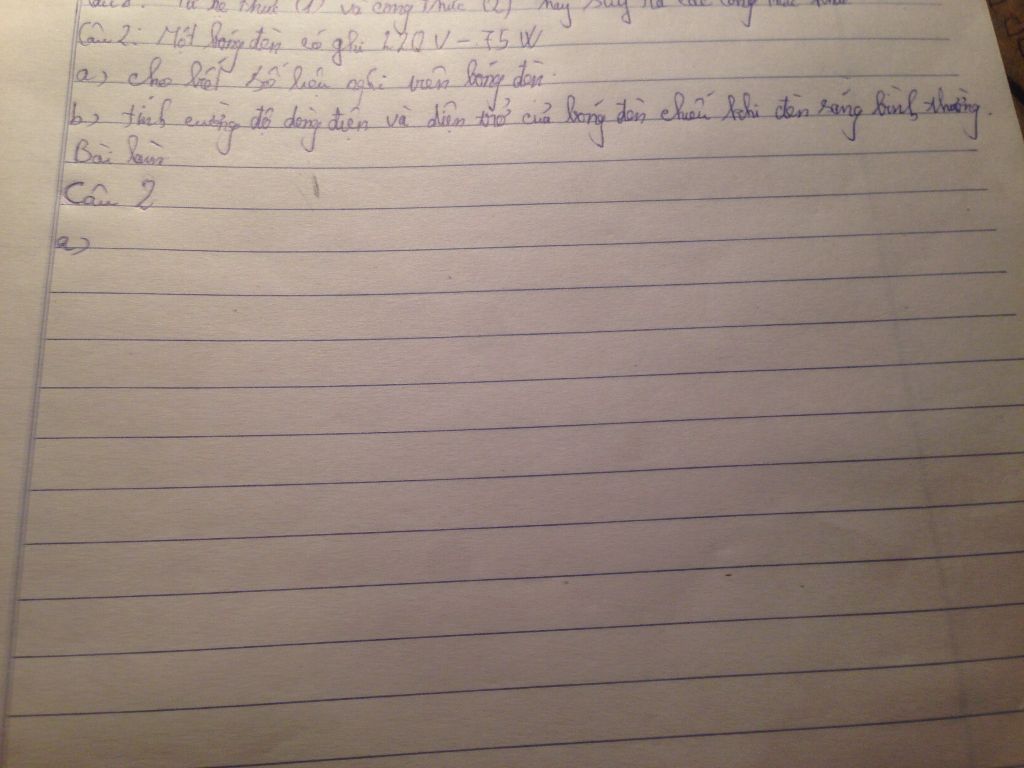 Từ hệ thức (1) và công thức (2) hãy suy ra các công thức
Câu 2: Một bóng đèn có ghi 220V - 75W
a, cho biết số liệu nghi trên bóng đèn.
b, tính cường độ dòng điện và điện trở của bóng đèn chiếu khi đèn sáng bình thường.
Bài làm
Câu 2
a,